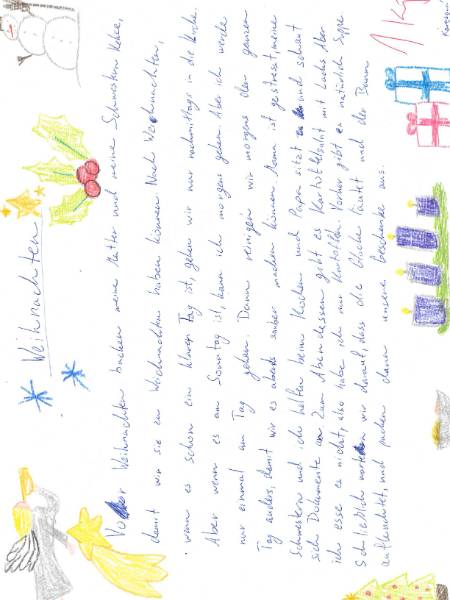 Weihnachten
Vor Weihnachten backen meine Mutter und meine Schwestern Kekse,
damit wir sie zu Weihnachten haben können. Nach Weihnachten,
wenn es schon ein klarer Tag ist, gehen wir nur nachmittags in die Kirche.
Aber wenn es am Sonntag ist, kann ich morgens gehen. Aber ich werde
nur einmal am Tag gehen. Dann reinigen wir morgens den ganzen
Tag anders, damit wir es abends sauber machen können. Mama ist gestresst, meine
Schwestern und ich helfen beim Kochen und Papa sitzt und schaut
sich Dokumente an. Zum Abendessen gibt es Kartoffelsalat mit Lachs. Aber
ich esse es nicht, also habe ich nur Kartoffeln. Vorher gibt es natürlich Suppe.
Schließlich warten wir darauf, dass die Glocke läutet und der Baum
aufleuchtet, und packen dann unsere Geschenke aus.